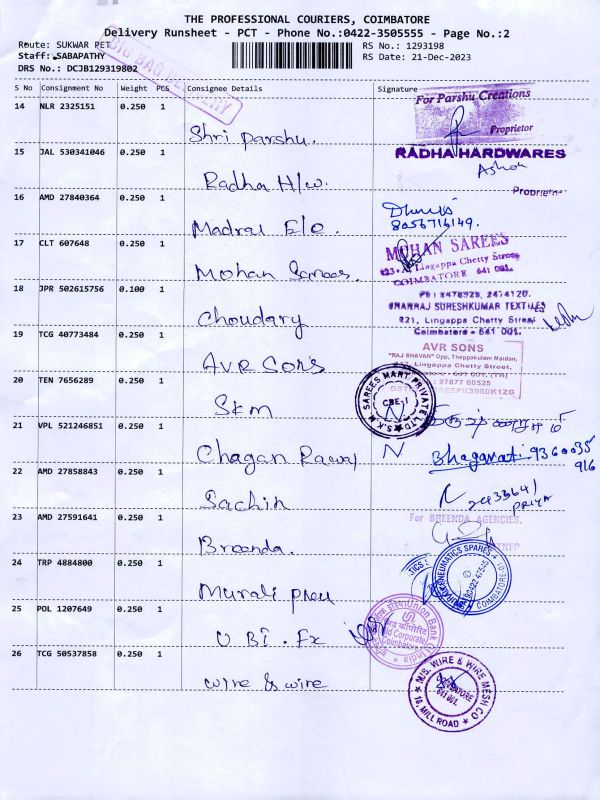 THE PROFESSIONAL COURIERS, COIMBATORE
Delivery Runsheet - PCT - Phone No.:0422-3505555 - Page No.:2
Route: SUKWAR PET
RS No.: 1293198
Staff: SABAPATHY
RS Date: 21-Dec-2023
DRS No.: DCJB129319802
BIG BAG
S No Consignment No Weight PCS Consignee Details Signature
14 NLR 2325151 0.250 1
For Parshu Creations
Shri Parshu.
Proprietor
15 JAL 530341046 0.250 1
RADHA HARDWARES
Ashok
Radha H/w.
Proprietor
16 AMD 27840364 0.250 1
8056716149.
Madras E/e.
17 CLT 607648 0.250 1
MOHAN SAREES
Lingappa Chetty Street
COIMBATORE 641 001.
Mohan Sarees.
18 JPR 502615756 0.100 1
PH: 2478929, 2474120.
DHANRAJ SURESHKUMAR TEXTILES
221, Lingappa Chetty Street
Coimbatore - 641 001.
Choudary
19 TCG 40773484 0.250 1
AVR SONS
"RAJ BHAVAN" Opp, Theppakulam Maidan,
Lingappa Chetty Street,
AVR Sons
20 TEN 7656289 0.250 1
S.K.M. SAREES MART PRIVATE LTD
CBE-1
SKM
21 VPL 521246851 0.250 1
Chagan
Bhagavati 9360035
916
22 AMD 27858843 0.250 1
PRIYA
Sachin
23 AMD 27591641 0.250 1
For BREENDA AGENCIES.
Breenda.
24 TRP 4884800 0.250 1
PNEUMATICS SPARES
COIMBATORE
Murali pneu
25 POL 1207649 0.250 1
Union Bank of India
Mid Corporate
Coimbatore
UBI. Fx
26 TCG 50537858 0.250 1
M/S. WIRE & WIRE MESH CO
COIMBATORE
641 001.
16, MILL ROAD
wire & wire